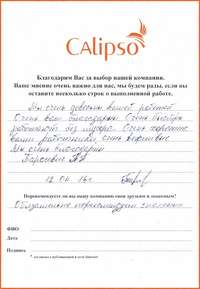 CALipso
Благодарим Вас за выбор нашей компании.
Ваше мнение очень важно для нас, мы будем рады, если вы
оставите несколько строк о выполненной работе.
Мы очень довольны вашей работой
Очень вам благодарны. Очень быстро
работают без мусора. Очень хорошие
ваши работники, очень вежливые
Мы очень благодарны
12.04.16г.
Порекомендуете ли вы нашу компанию свои друзьям и знакомым?
Обязательно порекомендуем знакомым
ФИО
Дата
Подпись